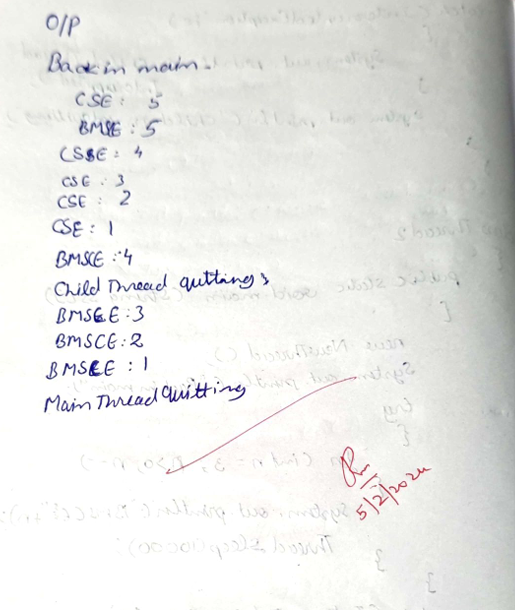 O/P
Back in main.
CSE : 5
BMSE : 5
CSSE : 4
CSE : 3
CSE : 2
CSE : 1
BMSCE : 4
Child Thread quttings
BMSCE : 3
BMSCE : 2
BMSCE : 1
Main Thread Quitting
5/2/2024